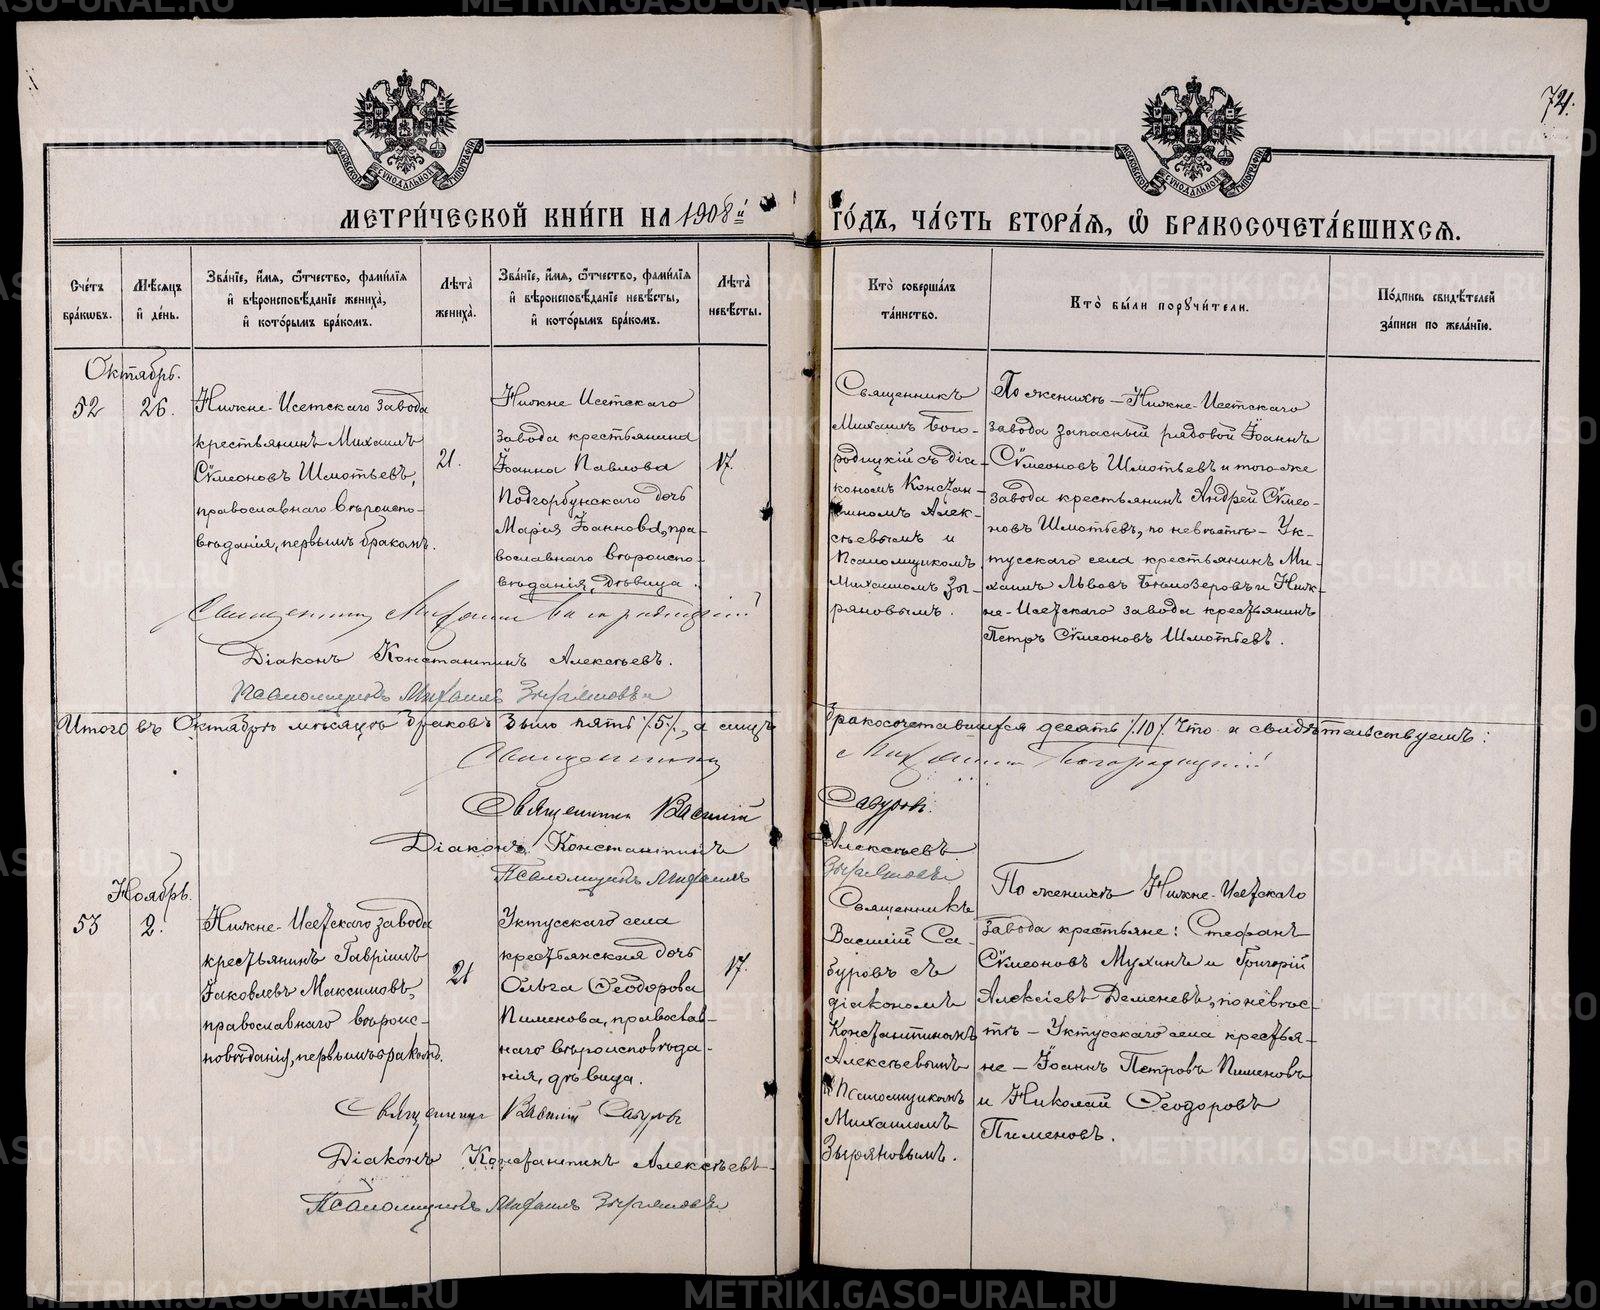 74.
МОСКОВСКОЙ СѴНОДАЛЬНОЙ ТИПОГРАФІИ
МОСКОВСКОЙ СѴНОДАЛЬНОЙ ТИПОГРАФІИ
МЕТРИ́ЧЕСКОЙ КНИ́ГИ НА 1908й ГО́ДЪ, ЧА́СТЬ ВТОРА́Я, Ѽ БРАКОСОЧЕТА́ВШИХСЯ.
Сче́тъ бра́кѡвъ.
Мѣ́сяцъ и҆ де́нь.
Зва́нїе, и҆́мя, ѻ҆́тчество, фами́лїя и҆ вѣроисповѣ́данїе жениха̀, и҆ кото́рымъ бра́комъ.
Лѣ́та жениха̀.
Зва́нїе, и҆́мя, ѻ҆́тчество, фами́лїя и҆ вѣроисповѣ́данїе невѣ́сты, и҆ кото́рымъ бра́комъ.
Лѣ́та невѣ́сты.
Кто̀ соверша́лъ та́инство.
Кто̀ бы́ли порꙋчи́тели.
По́дпись свидѣ́телей за́писи по жела́нїю.
Октябрь.
52
26.
Нижне-Исетскаго завода
крестьянинъ Михаилъ
Сѵмеоновъ Шмотьевъ,
православнаго вѣроиспо-
вѣданія, первымъ бракомъ.
21.
Нижне Исетскаго
завода крестьянина
Іоанна Павлова
Подгорбунскаго дочь
Марія Іоаннова, пра-
вославнаго вѣроиспо-
вѣданія, дѣвица.
17.
Священникъ
Михаилъ Бого-
родицкій съ діа-
кономъ Констан-
тиномъ Алек-
сѣевымъ и
Псаломщикомъ
Михаиломъ Зы-
ряновымъ.
По женихѣ – Нижне-Исетскаго
завода запасный рядовой Іоаннъ
Сѵмеоновъ Шмотьевъ и того же
завода крестьянинъ Андрей Сѵмео-
новъ Шмотьевъ, по невѣстѣ – Ук-
тусскаго села крестьянинъ Ми-
хаилъ Львовъ Бѣлозеровъ и Ниж-
не-Исетскаго завода крестьянинъ
Петръ Сѵмеоновъ Шмотьевъ.
Священникъ Михаилъ Богородицкій
Діаконъ Константинъ Алексѣевъ.
Псаломщикъ Михаилъ Зыряновъ
Итого въ Октябрѣ мѣсяцѣ браковъ было пять /5/, а лицъ бракосочетавшихся десять /10/ Что и свидѣтельствуемъ:
Священникъ Михаилъ Богородицкій
Священникъ Василій Сабуровъ.
Діаконъ Константинъ Алексѣевъ.
Псаломщикъ Михаилъ Зыряновъ
Ноябрь.
53
2.
Нижне-Исетскаго завода
крестьянинъ Гавріилъ
Іаковлевъ Максимовъ,
православнаго вѣроис-
повѣданія, первымъ бракомъ.
21
Уктусскаго села
крестьянская дочь
Ольга Ѳеодорова
Пименова, православ-
наго вѣроисповѣда-
нія, дѣвица.
17.
Священникъ
Василій Са-
буровъ съ
діакономъ
Константиномъ
Алексѣевымъ
и Псаломщикомъ
Михаиломъ
Зыряновымъ.
По женихѣ Нижне-Исетскаго
завода крестьяне: Стефанъ
Сѵмеоновъ Мухинъ и Григорій
Алексіевъ Деменевъ, по невѣс-
тѣ – Уктусскаго села крестья-
не – Іоаннъ Петровъ Пименовъ
и Николай Ѳеодоровъ
Пименовъ.
Священникъ Василій Сабуровъ
Діаконъ Константинъ Алексѣевъ
Псаломщикъ Михаилъ Зыряновъ
METRIKI.GASO-URAL.RU